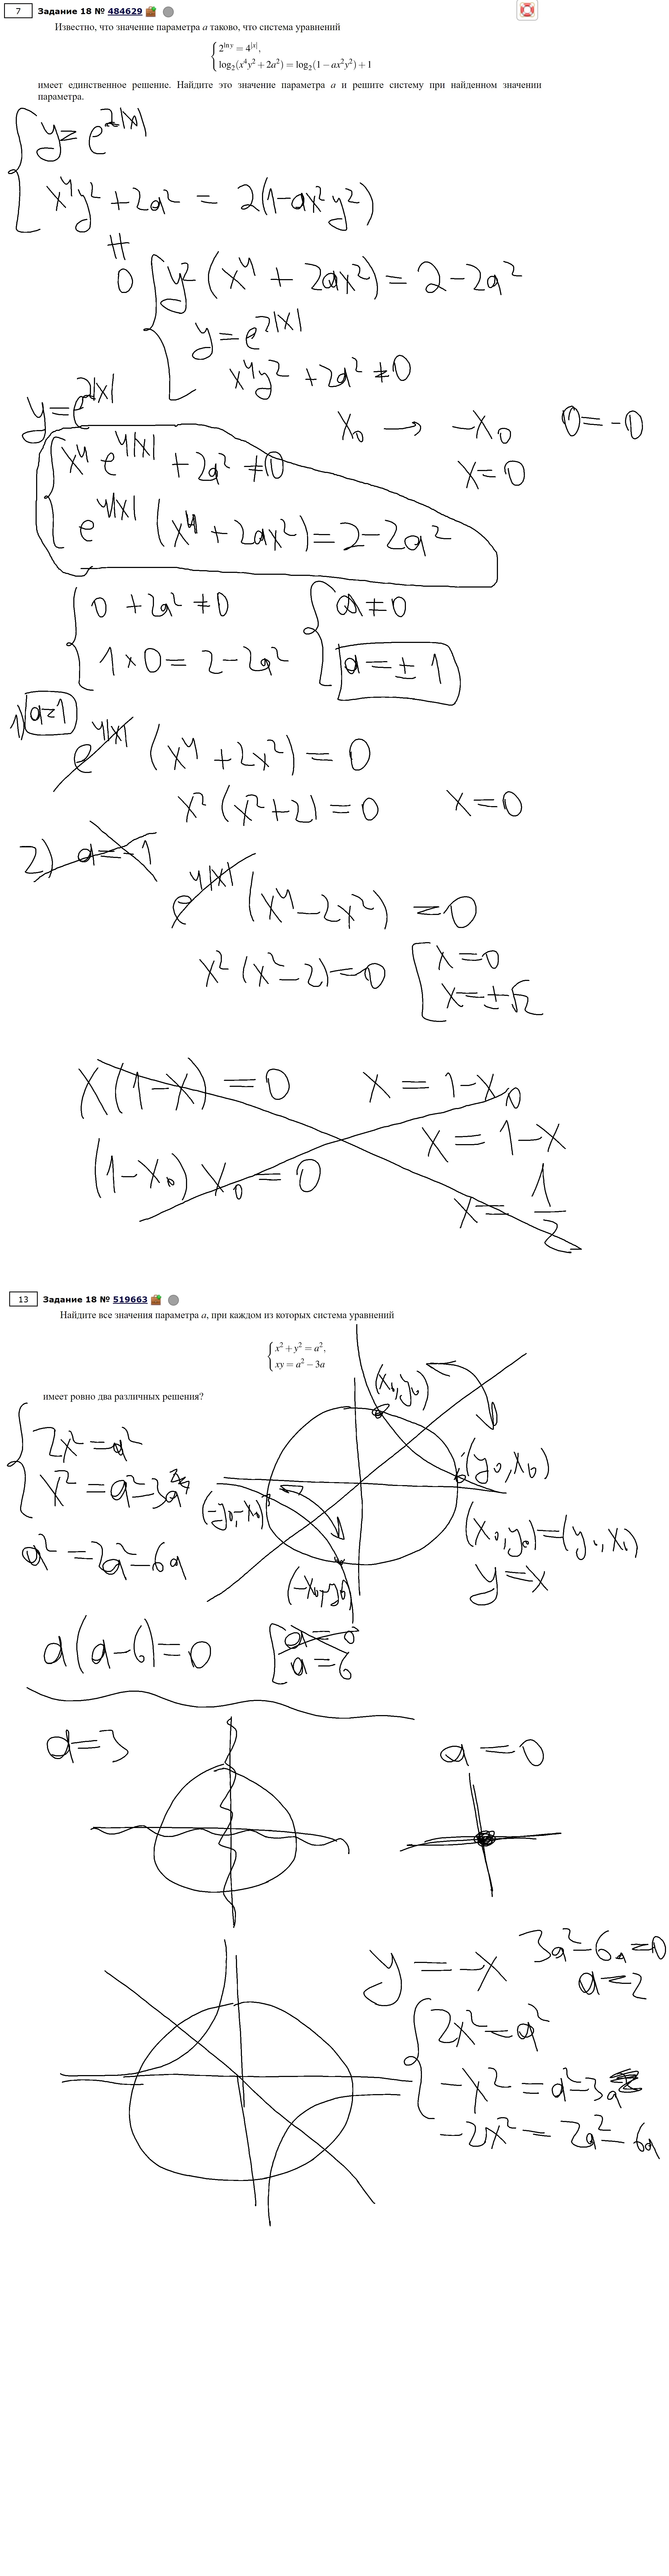 7 Задание 18 № 484629
Известно, что значение параметра a таково, что система уравнений
{ 2^{ln y} = 4^{|x|},
log₂(x⁴y² + 2a²) = log₂(1 − ax²y²) + 1
имеет единственное решение. Найдите это значение параметра a и решите систему при найденном значении
параметра.
{ y = e^{2|x|}
x⁴y² + 2a² = 2(1−ax²y²)
≠
0
{ y²(x⁴ + 2ax²) = 2−2a²
y = e^{2|x|}
x⁴y² + 2a² ≠ 0
y = e^{2|x|}
x₀ → −x₀ 0 = −0
x = 0
{ x⁴ e^{4|x|} + 2a² ≠ 0
e^{4|x|} (x⁴ + 2ax²) = 2−2a²
{ 0 + 2a² ≠ 0
1×0 = 2−2a²
{ a ≠ 0
a = ± 1
1) a=1
e^{4|x|} (x⁴ + 2x²) = 0
x² (x²+2) = 0 x = 0
2) a = −1
e^{4|x|} (x⁴ − 2x²) = 0
x² (x²−2) = 0 [ x = 0
x = ±√2
x(1−x) = 0 x = 1−x₀
(1−x₀) x₀ = 0 x = 1−x
x = 1/2
13 Задание 18 № 519663
Найдите все значения параметра a, при каждом из которых система уравнений
{ x² + y² = a²,
xy = a² − 3a
имеет ровно два различных решения?
(x₀, y₀)
{ 2x² = a²
x² = a² − 3a
(y₀, x₀)
(−y₀, −x₀)
(x₀, y₀) = (y₀, x₀)
a² = 2a² − 6a
y = x
(−x₀, −y₀)
a(a−6) = 0 [ a = 0
a = 6
a = 3 a = 0
y = −x 3a² − 6a = 0
a = 2
{ 2x² = a²
−x² = a² − 3a
−2x² = 2a² − 6a